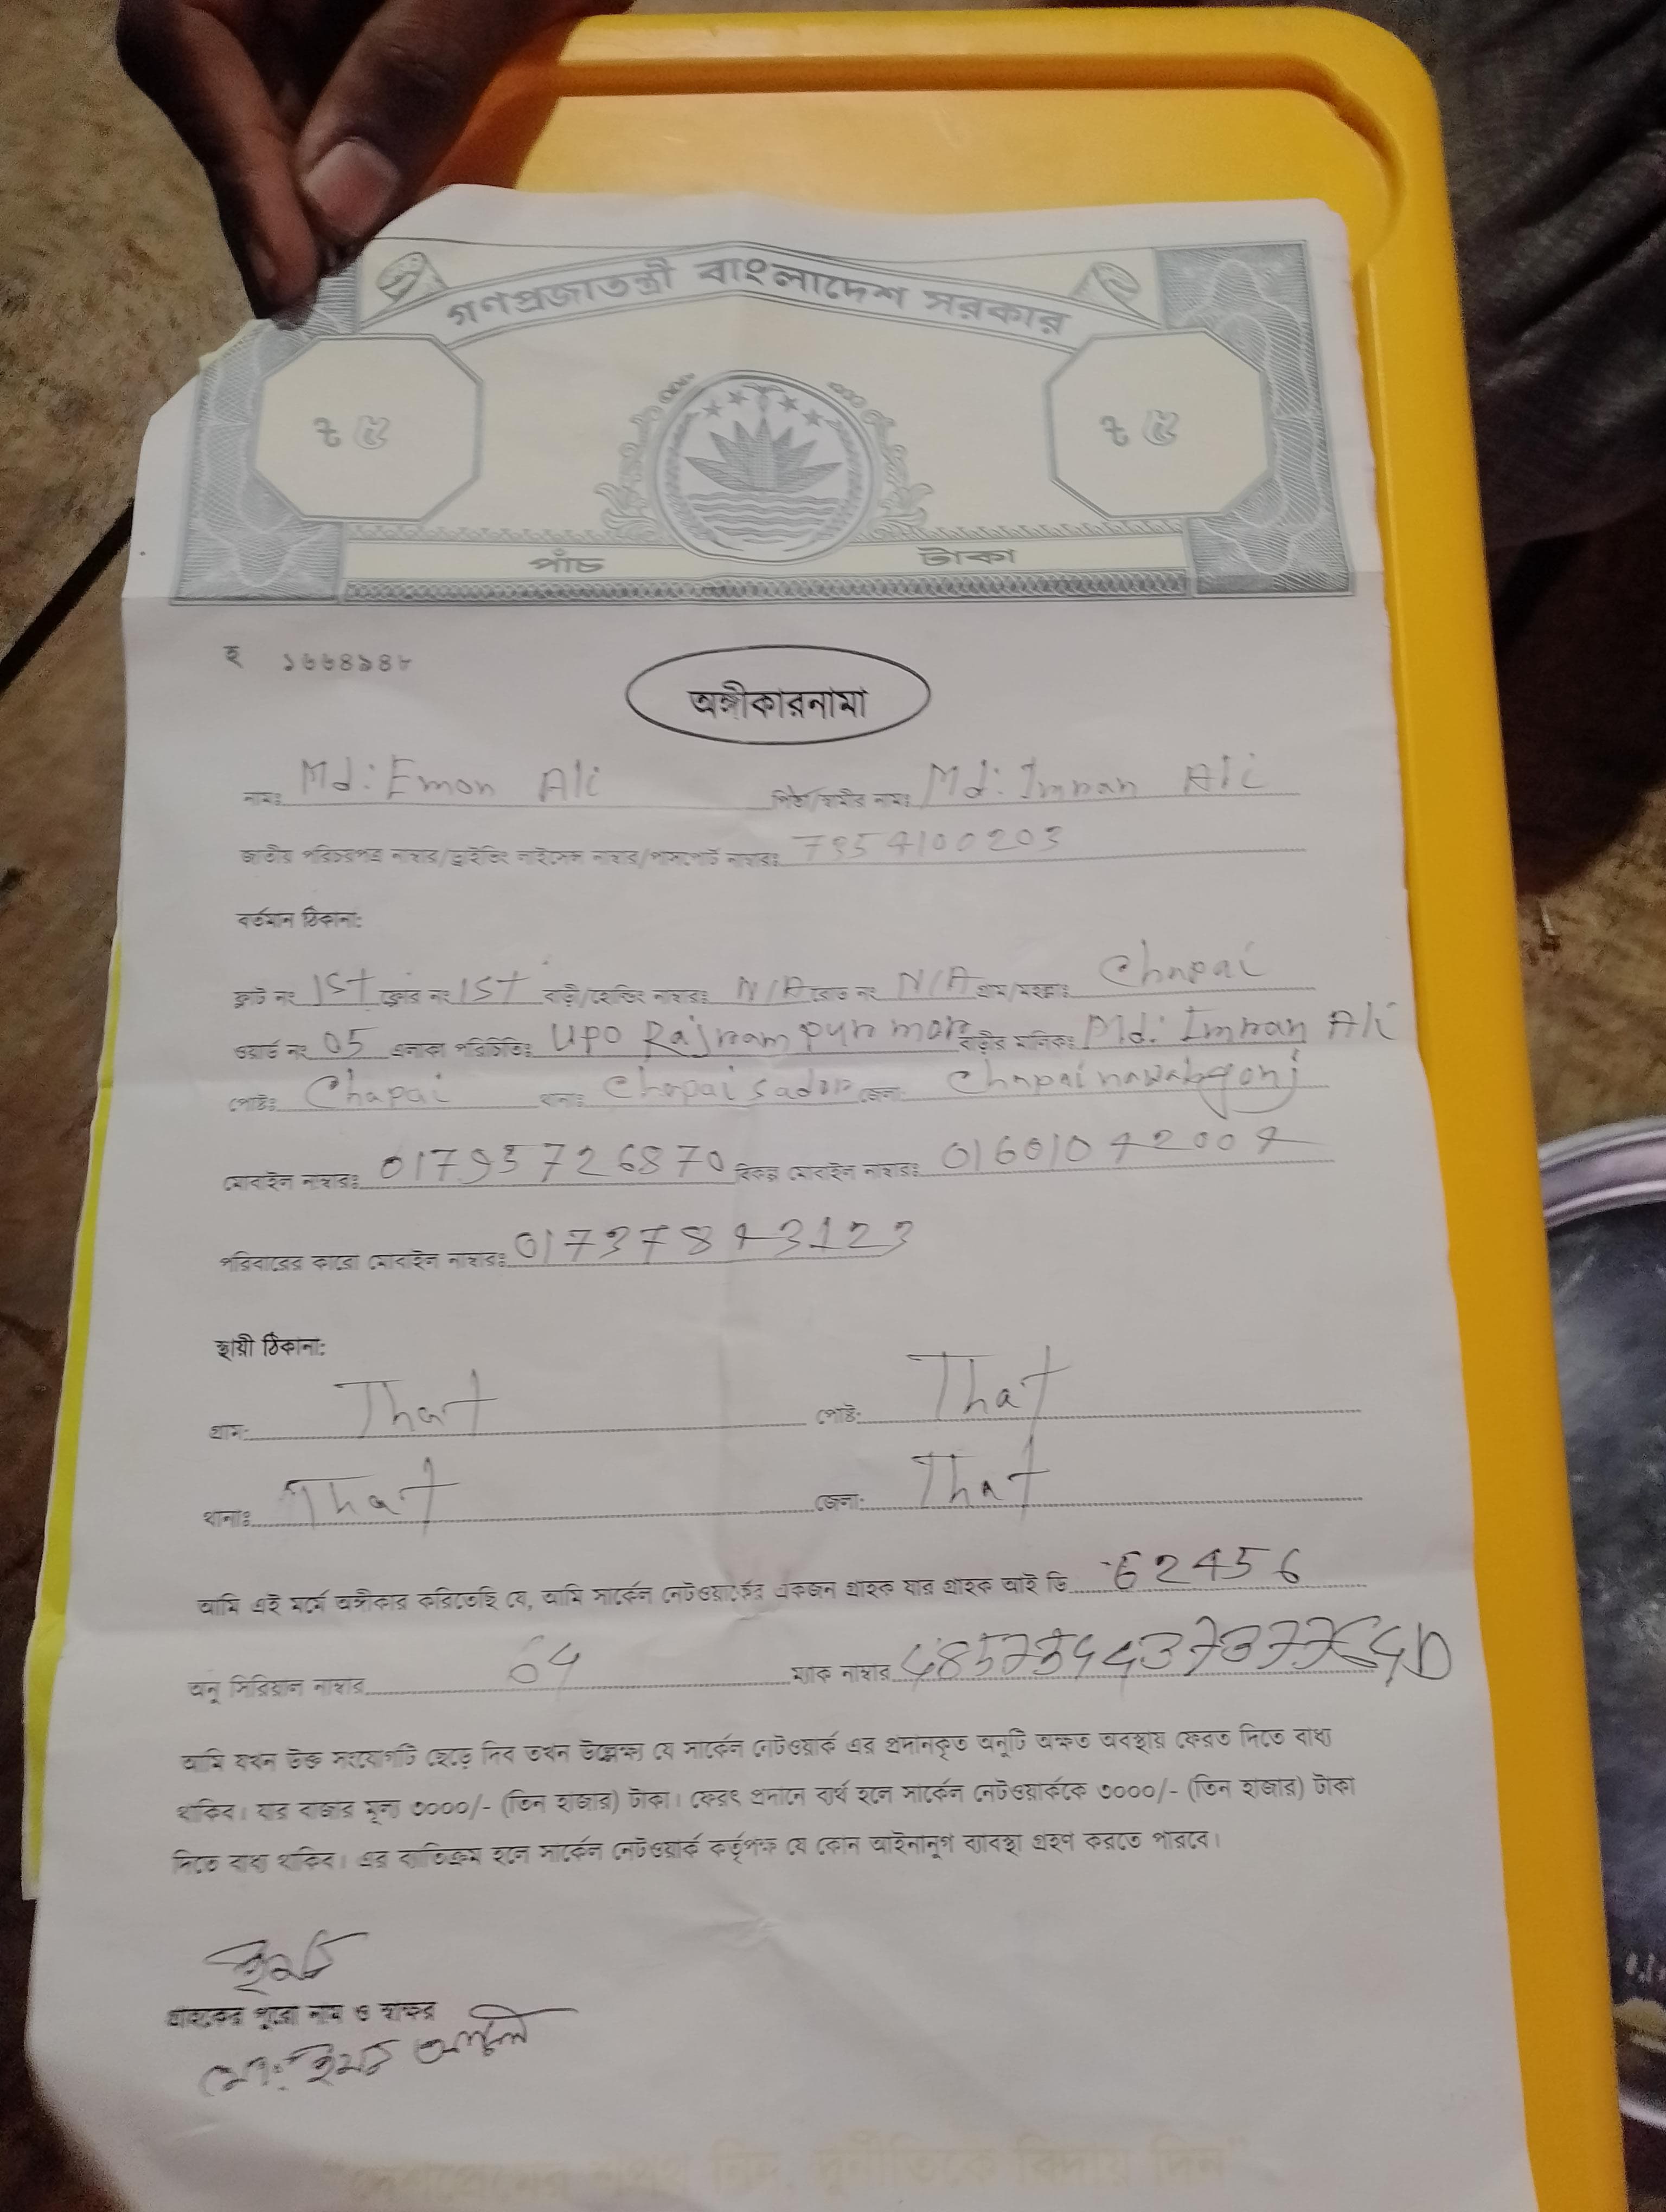 গণপ্রজাতন্ত্রী বাংলাদেশ সরকার
৳ ৫ ৳ ৫
পাঁচ টাকা
১৬৬৪৯৪৮
অঙ্গীকারনামা
নামঃ Md: Emon Ali পিতা/স্বামীর নামঃ Md: Imran Ali
জাতীয় পরিচয়পত্র নাম্বার/ড্রাইভিং লাইসেন্স নাম্বার/পাসপোর্ট নাম্বারঃ 7354100203
বর্তমান ঠিকানা:
ফ্লাট নং 1st ফ্লোর নং 1st বাড়ী/হোল্ডিং নাম্বারঃ N/A রোড নং N/A গ্রাম/মহল্লাঃ Chapai
ওয়ার্ড নং 05 এলাকা পরিচিতিঃ Upo Rajrampur mor বাড়ীর মালিকঃ Md: Imran Ali
পোষ্টঃ Chapai থানাঃ Chapai sador জেলা: Chapainawabgonj
মোবাইল নাম্বারঃ 01795726870 বিকল্প মোবাইল নাম্বারঃ 01601042004
পরিবারের কারো মোবাইল নাম্বারঃ 01737843123
স্থায়ী ঠিকানা:
গ্রাম: That পোষ্ট: That
থানাঃ That জেলা: That
আমি এই মর্মে অঙ্গীকার করিতেছি যে, আমি সার্কেল নেটওয়ার্কের একজন গ্রাহক যার গ্রাহক আই ডি 62456
অনু সিরিয়াল নাম্বার 64 ম্যাক নাম্বার 485754437377640
আমি যখন উক্ত সংযোগটি ছেড়ে দিব তখন উল্লেক্ষ্য যে সার্কেল নেটওয়ার্ক এর প্রদানকৃত অনুটি অক্ষত অবস্থায় ফেরত দিতে বাধ্য
থাকিব। যার বাজার মূল্য ৩০০০/- (তিন হাজার) টাকা। ফেরৎ প্রদানে ব্যর্থ হলে সার্কেল নেটওয়ার্ককে ৩০০০/- (তিন হাজার) টাকা
দিতে বাধ্য থাকিব। এর ব্যতিক্রম হলে সার্কেল নেটওয়ার্ক কর্তৃপক্ষ যে কোন আইনানুগ ব্যাবস্থা গ্রহণ করতে পারবে।
ইমন
গ্রাহকের পুরো নাম ও স্বাক্ষর
মোঃ ইমন আলী
"দেশপ্রেমের শপথ নিন, দুর্নীতিকে বিদায় দিন"